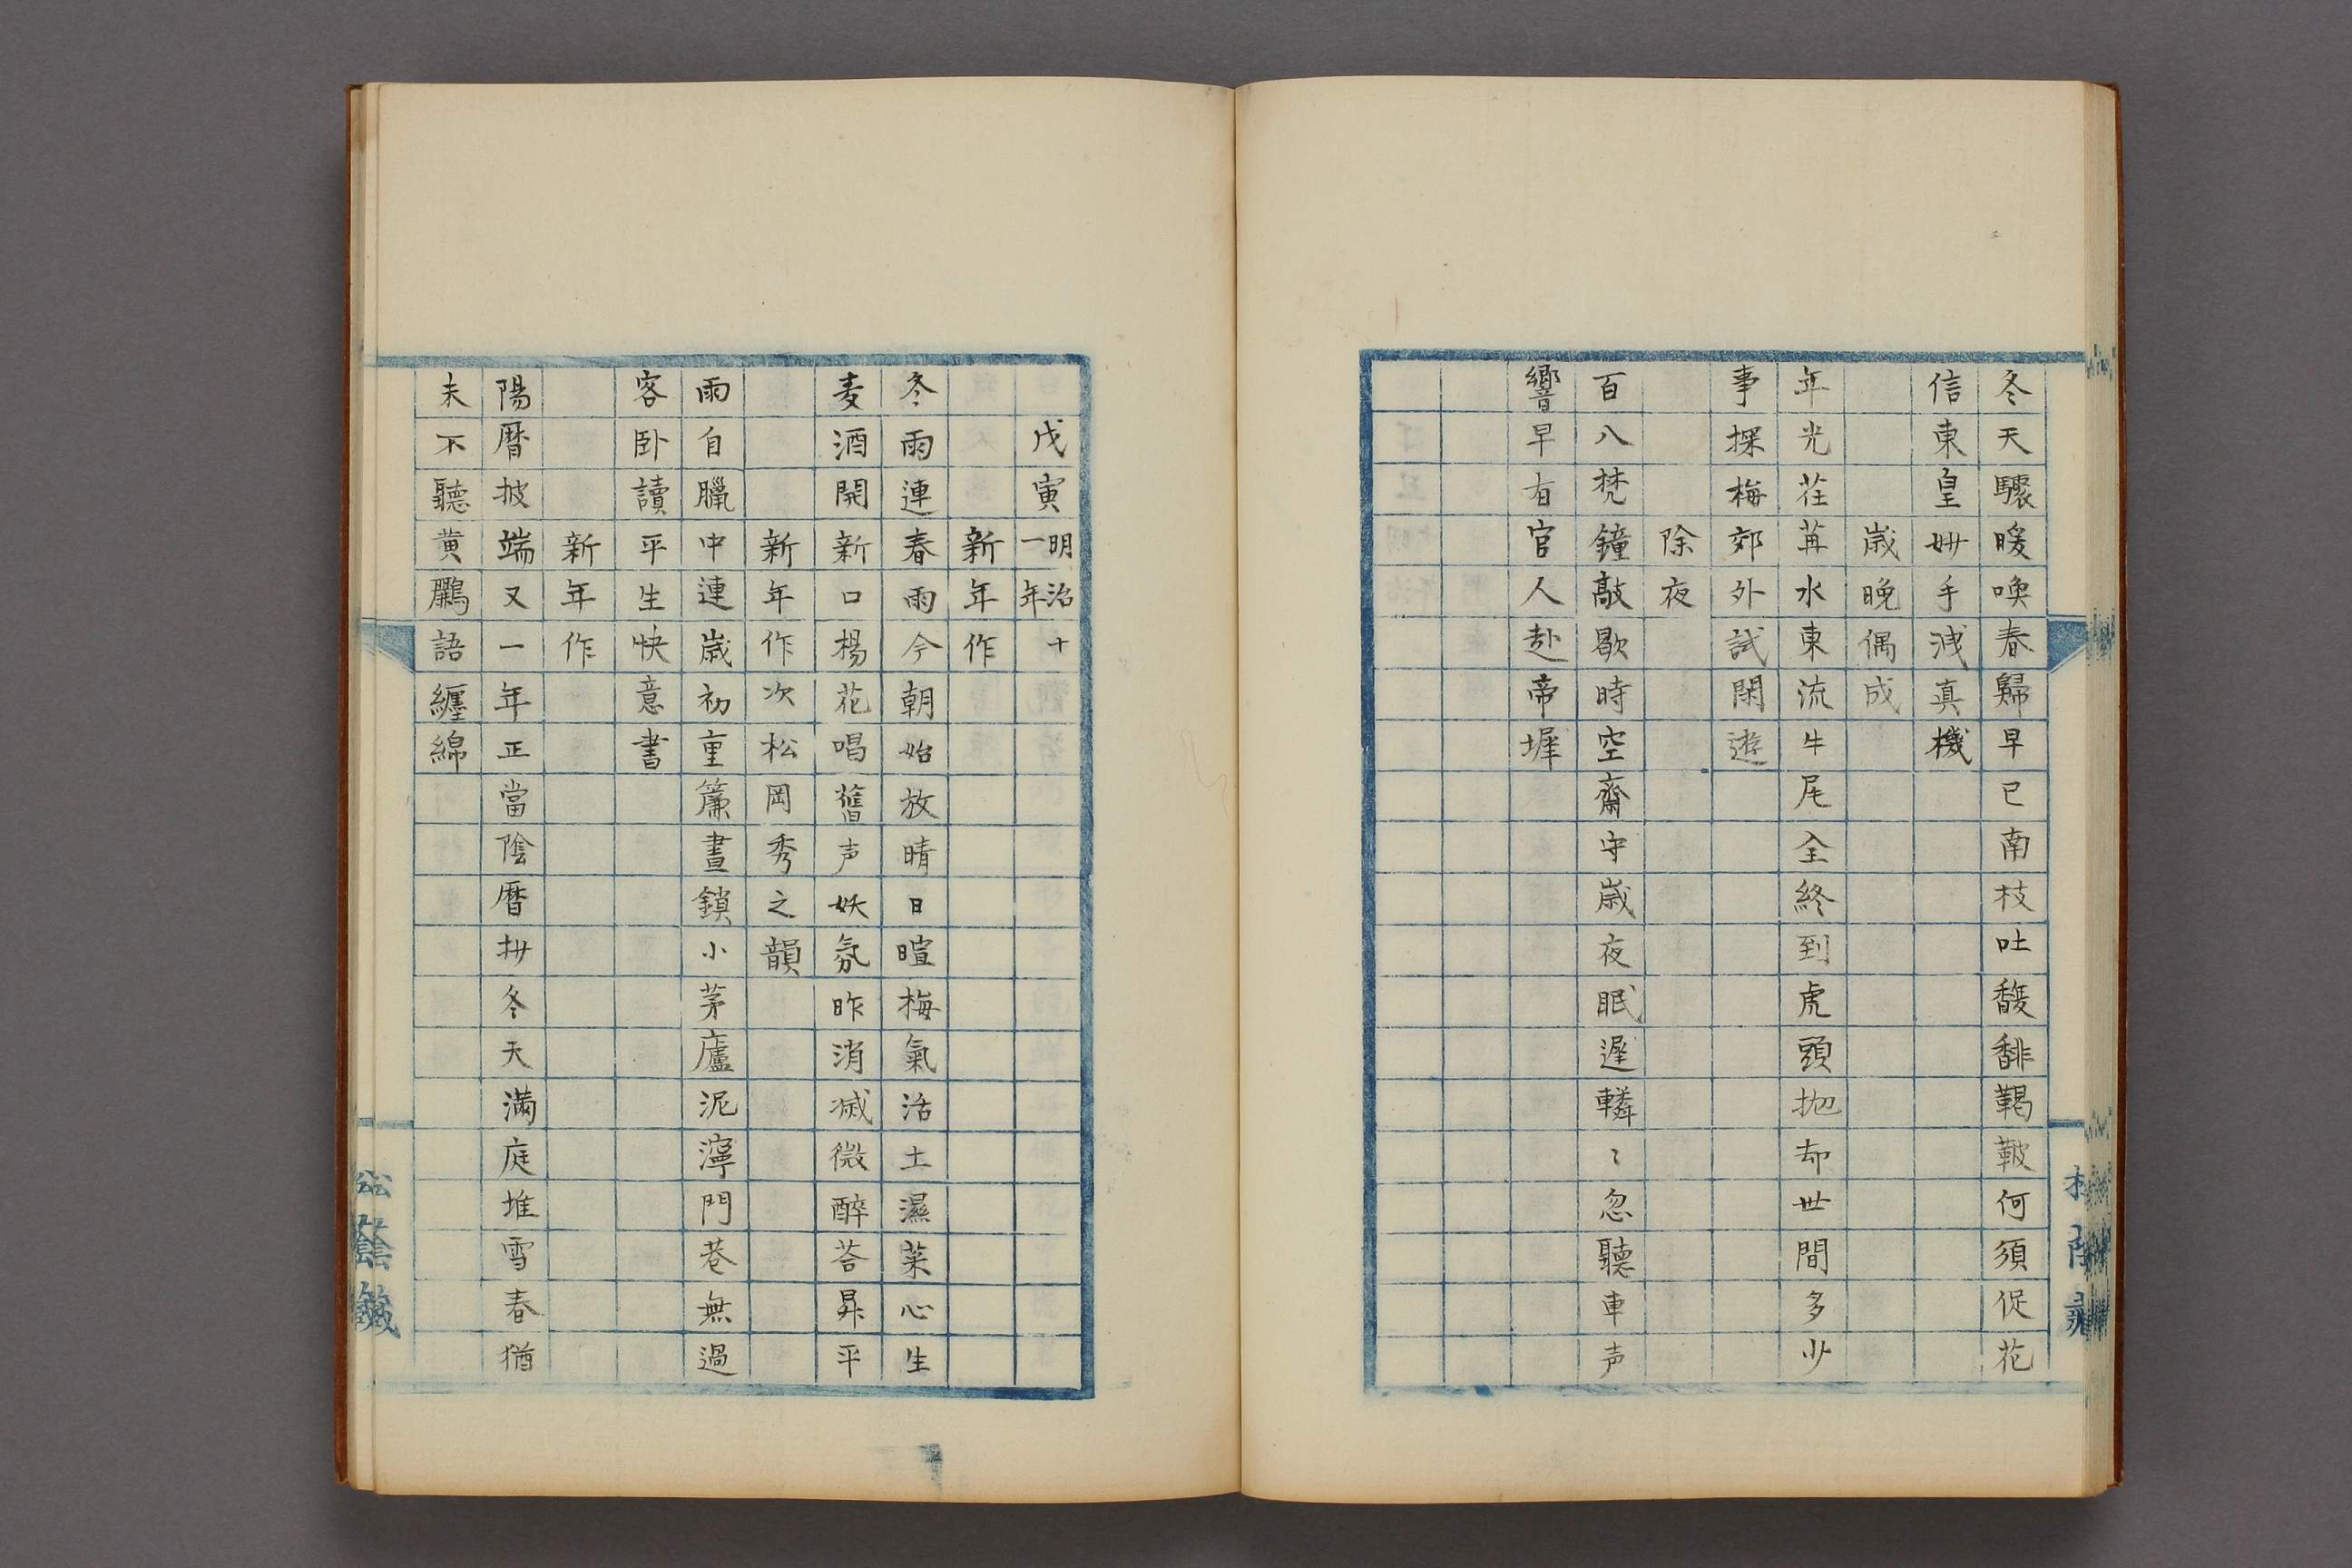 冬天驟暖喚春歸早已南枝吐馥馡鞨鞁何須促花
信東皇妙手洩真機
歳晩偶成
年光荏苒水東流牛尾全終到虎頭抛却世間多少
事探梅郊外試閑遊
除夜
百八梵鐘敲歇時空齋守歳夜眠遅轔〻忽聴車声
響早有官人赴帝墀
戊寅明治十一年
新年作
冬雨連春雨今朝始放晴日暄梅氣活土濕菜心生
麦酒開新口楊花唱舊声妖氛昨消滅微醉荅昇平
新年作次松岡秀之韻
雨自臘中連歳初重簾晝鎖小茅廬泥濘門巷無過
客卧讀平生快意書
新年作
陽暦披端又一年正當陰暦抍冬天満庭堆雪春猶
未不聽黄鸝語纏綿
松蔭鐵